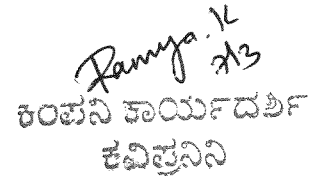 Ramya.K
7/3
ಕಂಪನಿ ಕಾರ್ಯದರ್ಶಿ
ಕವಿಪ್ರನಿನಿ